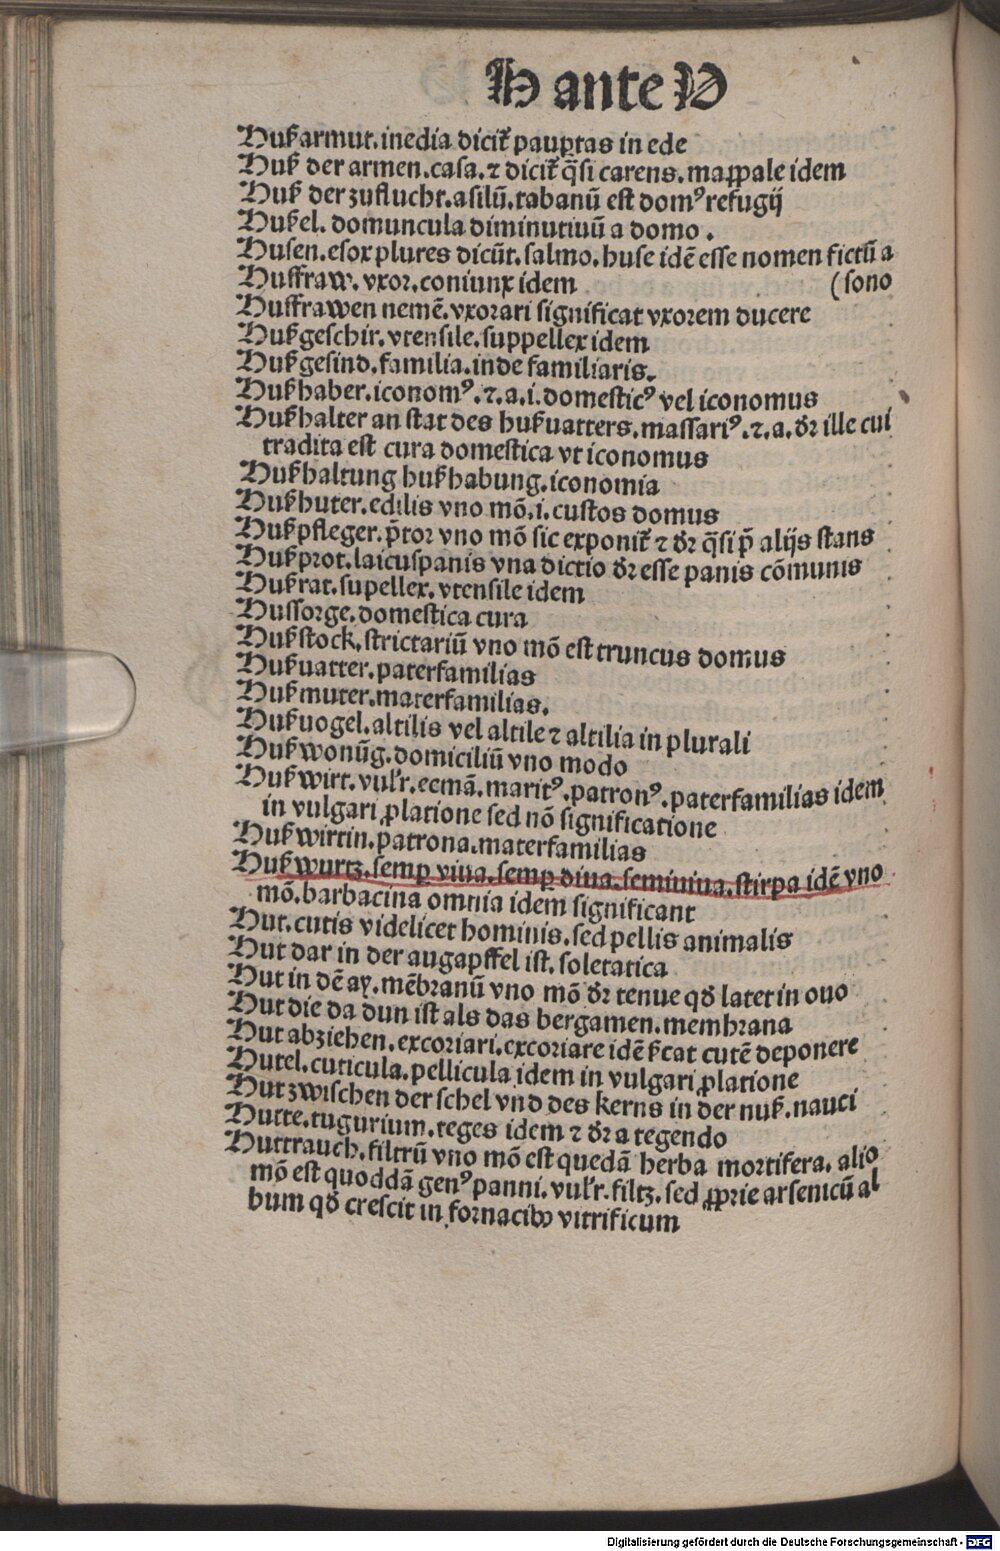 H ante V
Huß armut. inedia dicit᷑ paup̲tas in ede
Huß der armen. casa. ⁊ dicit᷑ q̄si carens. mappale idem
Huß der zuflucht. asilū. tabanū est domꝰ refugij
Hußel. domuncula diminutiuū a domo.
Husen. esox plures dicūt. salmo. huse idē esse nomen fictū a
Hussfraw. vxor. coniunx idem (sono
Hussfrawen nemē. vxorari significat vxorem ducere
Hußgeschir. vtensile. suppellex idem
Hußgesind. familia. inde familiaris.
Hußhaber. iconomꝰ. ⁊. a. i. domesticꝰ vel iconomus
Hußhalter an stat des hußuatters. massariꝰ. ⁊. a. dr̄ ille cui
tradita est cura domestica vt iconomus
Hußhaltung hußhabung. iconomia
Hußhuter. edilis vno mō. i. custos domus
Hußpfleger. p̄tor vno mō sic exponit᷑ ⁊ dr̄ q̄si p̄ alijs stans
Hußprot. laicuspanis vna dictio dr̄ esse panis cōmunis
Hußrat. supellex. vtensile idem
Hussorge. domestica cura
Hußstock. strictariū vno mō est truncus domus
Hußuatter. paterfamilias
Hußmuter. materfamilias.
Hußuogel. altilis vel altile ⁊ altilia in plurali
Hußwonūg. domiciliū vno modo
Hußwirt. vul'r. eemā. maritꝰ. patronꝰ. paterfamilias idem
in vulgari ꝓlatione sed nō significatione
Hußwirtin. patrona. materfamilias
Hußwurtz. semꝑ viua. semꝑ diua. semiuiua. stirpa idē vno
mō. barbacina omnia idem significant
Hut. cutis videlicet hominis. sed pellis animalis
Hut dar in der augapffel ist. soletatica
Hut in dē ay. mēbranū vno mō dr̄ tenue qd̄ latet in ouo
Hut die da dun ist als das bergamen. membrana
Hut abziehen. excoriari. excoriare idē s̄cat cutē deponere
Hutel. cuticula. pellicula idem in vulgari ꝓlatione
Hut zwischen der schel vnd des kerns in der nuß. nauci
Hutte. tugurium. teges idem ⁊ dr̄ a tegendo
Huttrauch. filtrū vno mō est quedā herba mortifera. alio
mō est quoddā genꝰ panni. vul'r. filtz. sed ꝓprie arsenicū al
bum qd̄ crescit in fornacibꝰ vitrificum
Digitalisierung gefördert durch die Deutsche Forschungsgemeinschaft - DFG